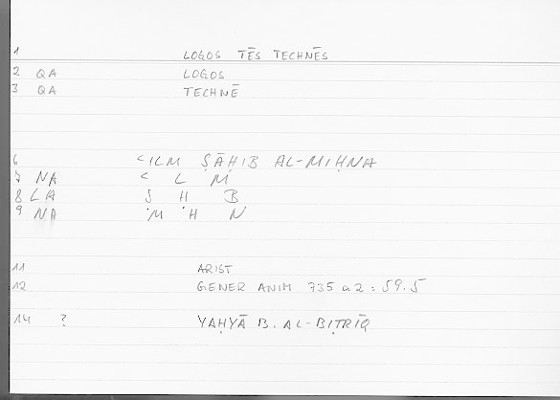 1 LOGOS TĒS TECHNĒS
2 QA LOGOS
3 QA TECHNĒ
6 ʿILM ṢĀḤIB AL-MIHNA
7 NA ʿ L M
8 LA Ṣ Ḥ B
9 NA M H N
11 ARIST
12 GENER ANIM 735 a 2 : 59.5
14 ? YAḤYĀ B. AL-BIṬRĪQ